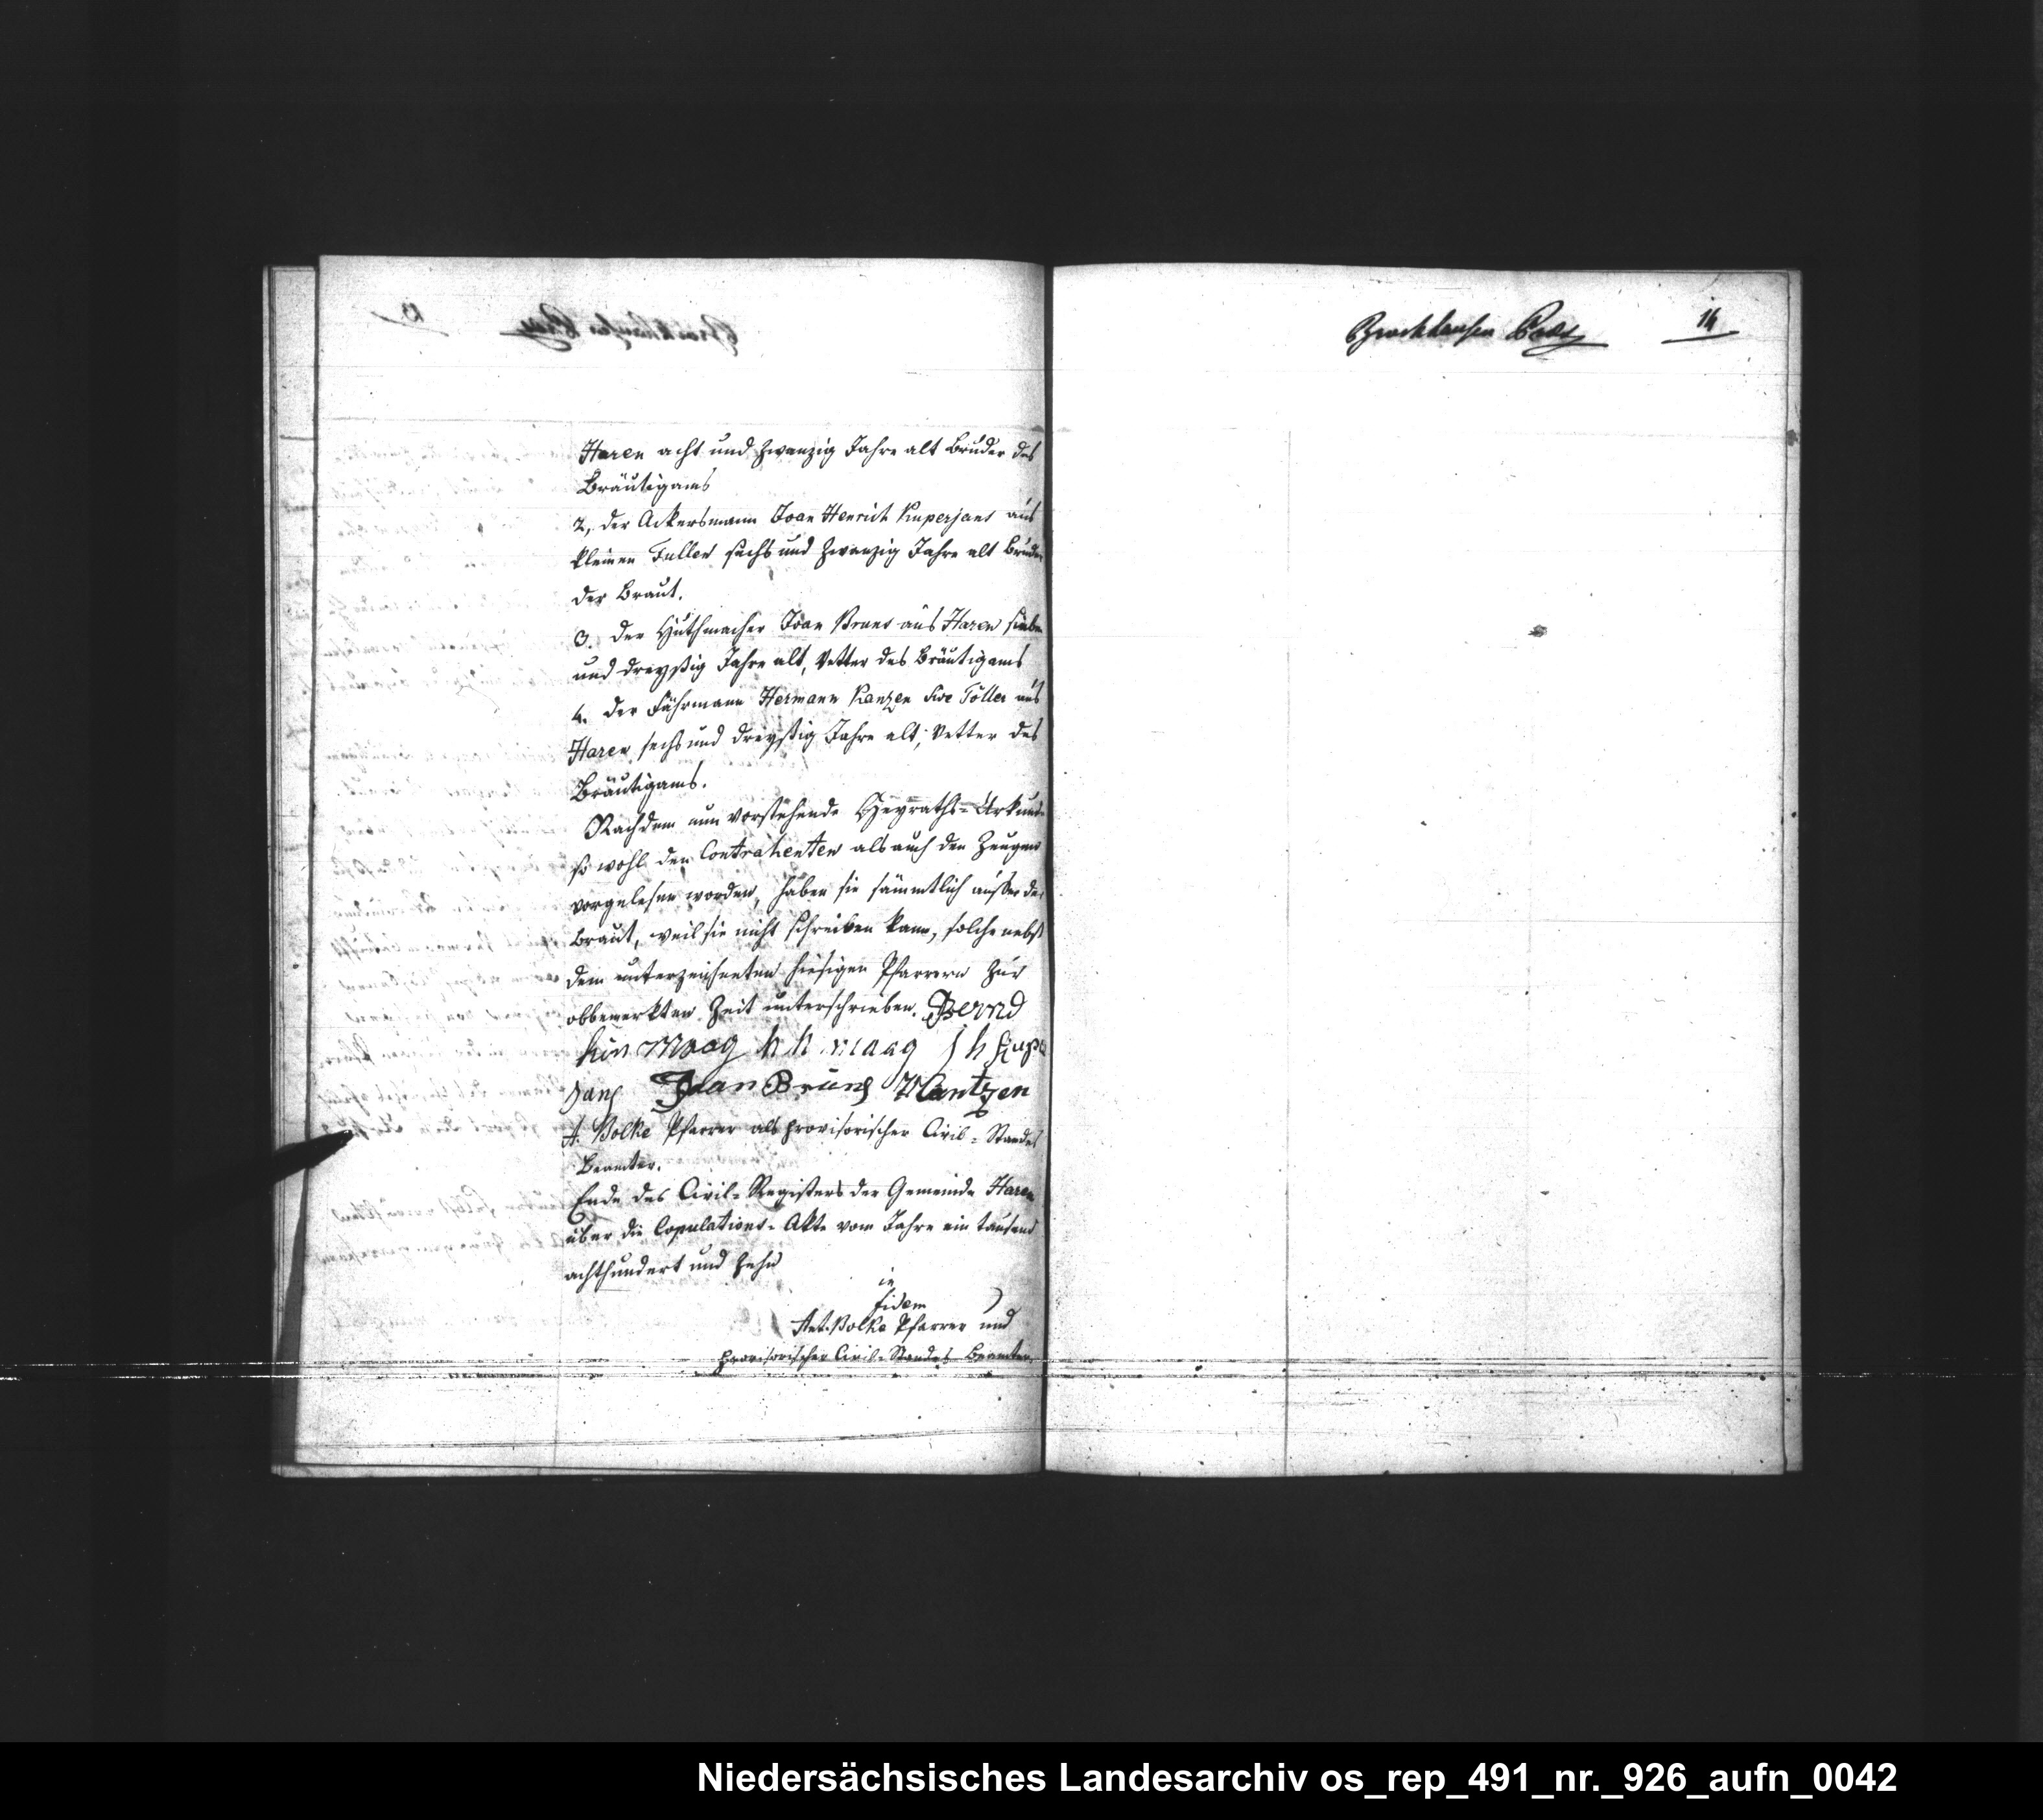 Haren acht und zwanzig Jahre alt Bruder des
Bräutigams
2, der Ackersmann Joan Henrich Kuperjans aus
kleinen Fullen sechs und zwanzig Jahre alt Bruder
der Braut.
3. der Huthmacher Joan Bruns aus Haren sieben
und dreyßig Jahre alt, Vetter des Bräutigams
4. der Fährmann Hermann Kantzen sive Töller aus
Haren sechs und dreyßig Jahre alt, Vetter des
Bräutigams.
Nachdem nun vorstehende Heyraths-Urkunde
so wohl den Contrahenten als auch den Zeugen
vorgelesen worden, haben sie sämmtlich ausser der
Braut, weil sie nicht schreiben kann, solche nebst
dem unterzeichneten hiesigen Pfarrern zur
obbemerkten Zeit unterschrieben. Bernd
hin Maag h h maag J h Kuper
Jans Joan Bruns Kantzen
A. Bolke Pfarrer als provisorischer Civil-Standes
Beamter.
Ende des Civil-Registers der Gemeinde Haren
über die Copulations-Akte vom Jahre ein tausend
achthundert und zehn
in
fidem
Ant. Bolke Pfarrer und
provisorischer Civil-Standes Beamter
Brockhausen
14
Niedersächsisches Landesarchiv os_rep_491_nr._926_aufn_0042